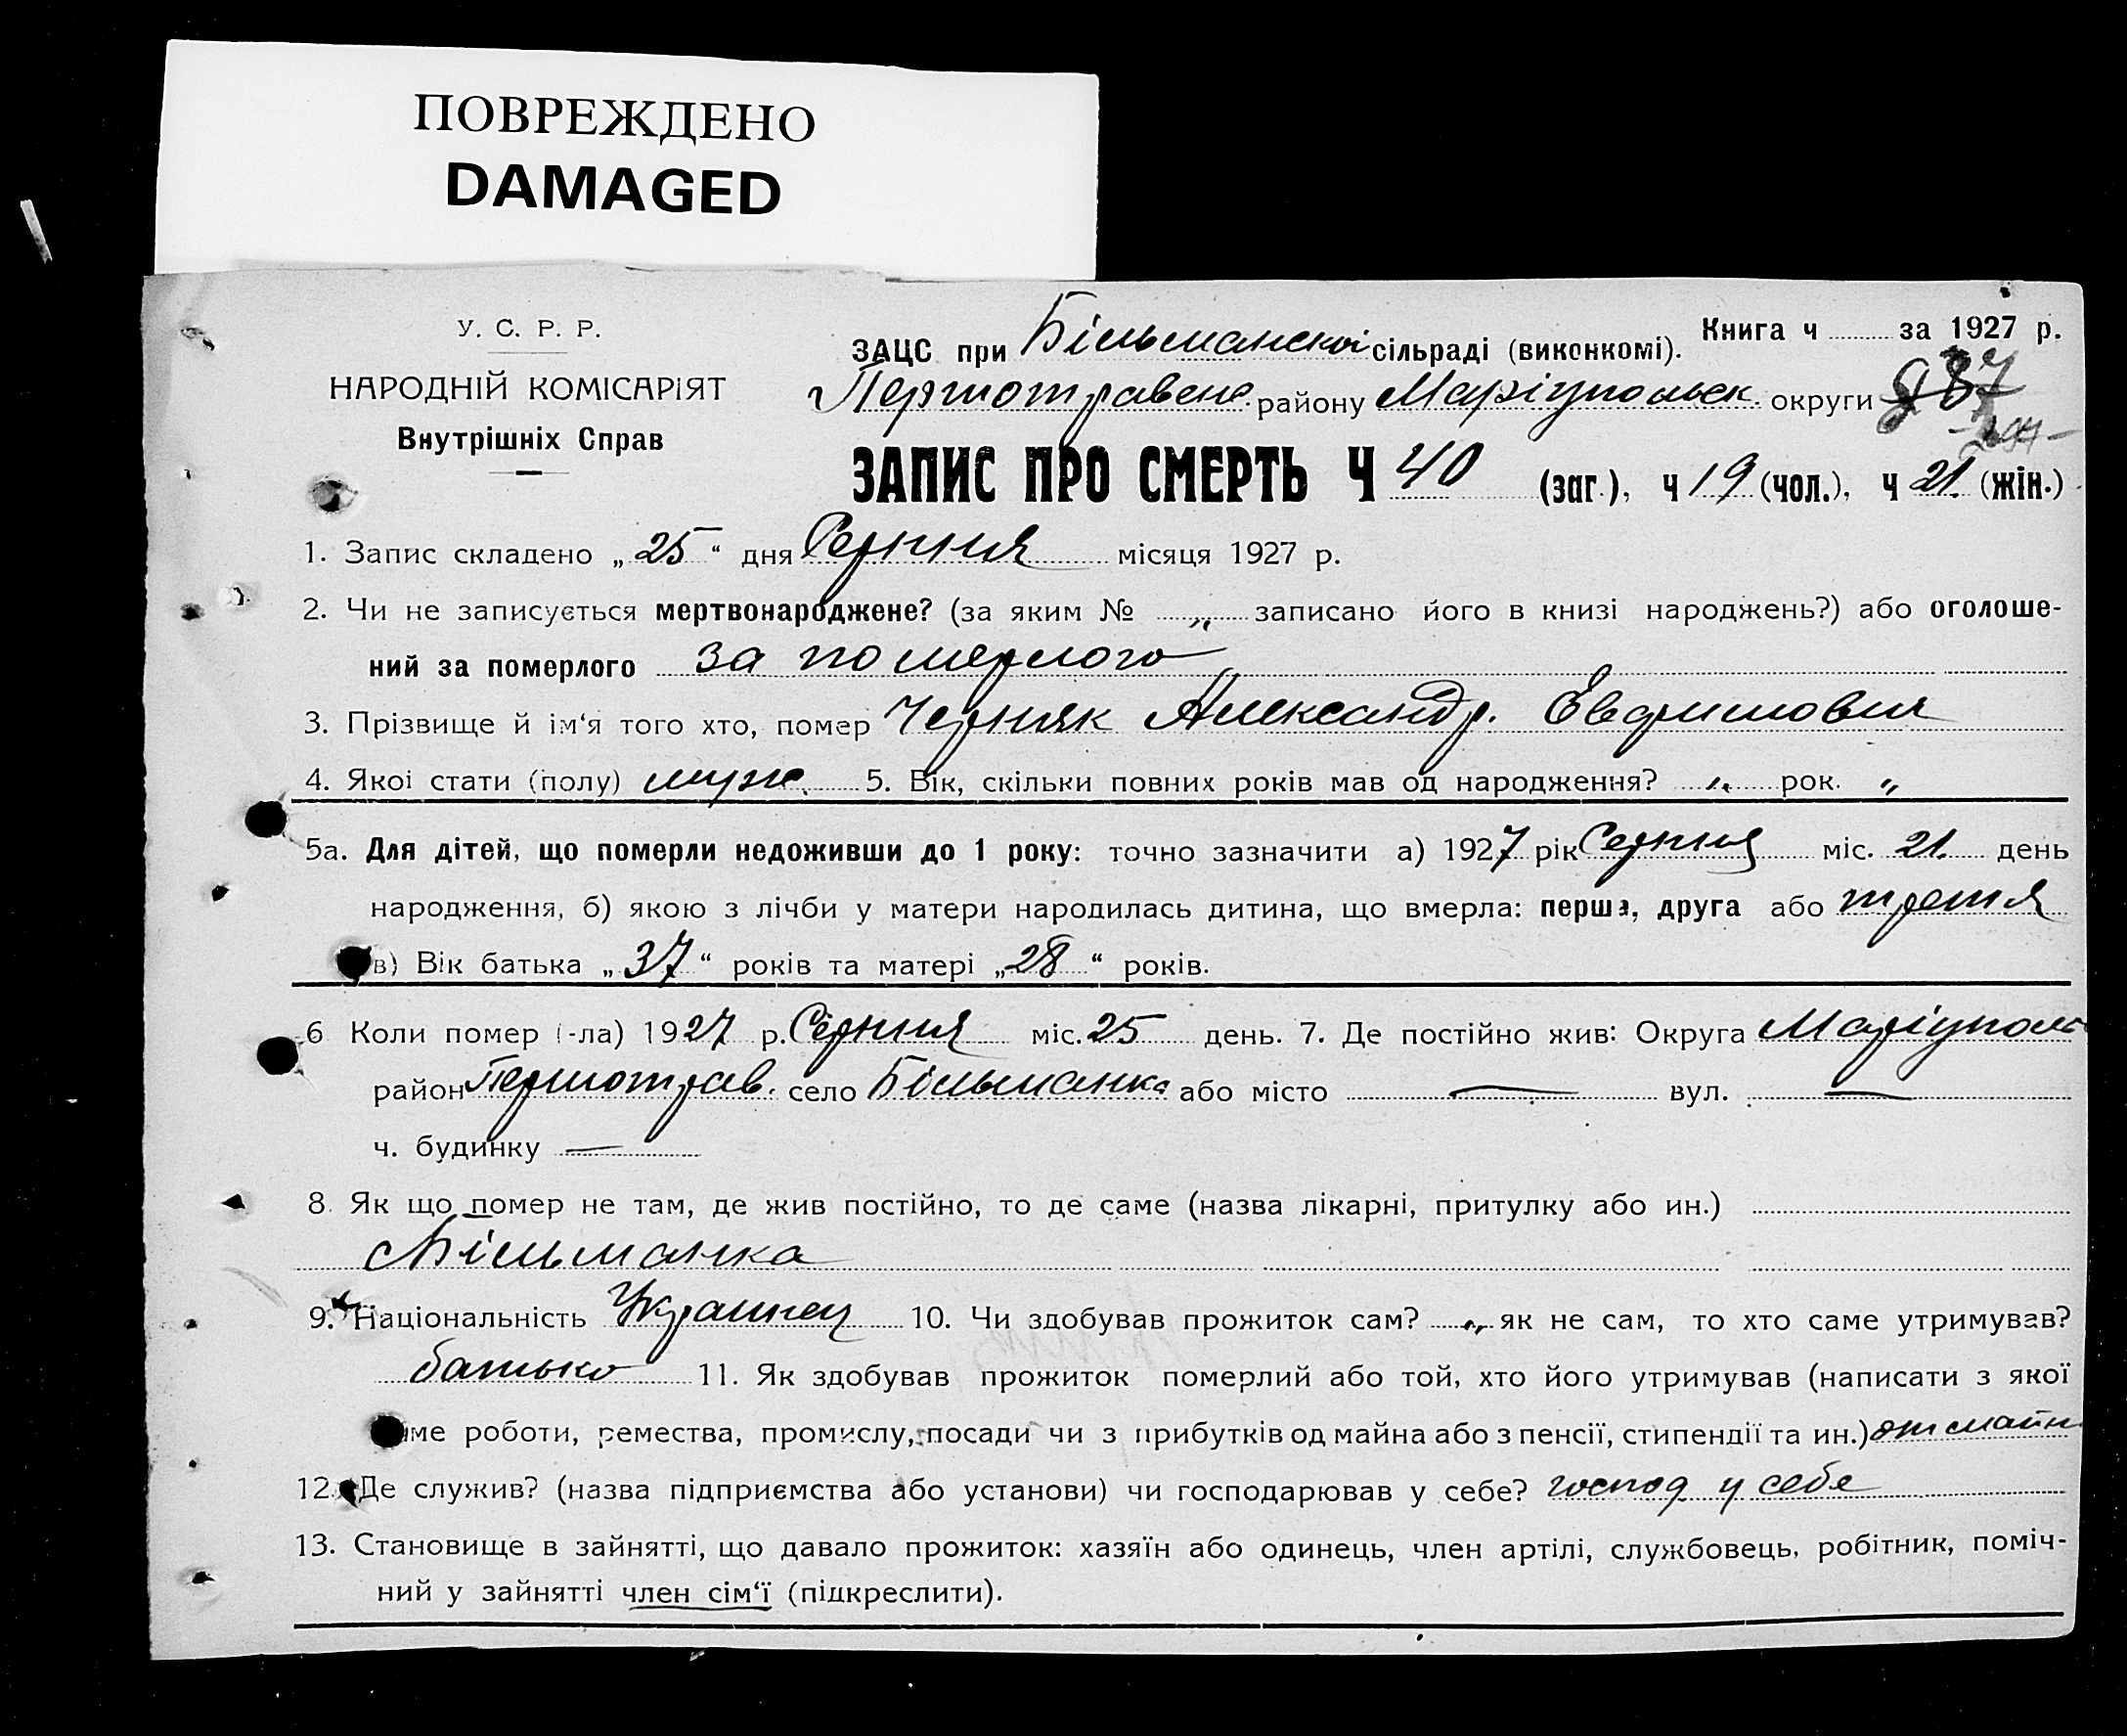 ПОВРЕЖДЕНО
DAMAGED
У. С. Р. Р.
НАРОДНІЙ КОМІСАРІЯТ
Внутрішніх Справ
Книга ч за 1927 р.
ЗАЦС при Більманской сільраді (виконкомі).
Першотравене. району Маріупольск. округи 837
ЗАПИС ПРО СМЕРТЬ Ч 40 (заг.), ч 19 (чол.), ч 21. (жін.)
1. Запис складено „ 25 “ дня Серпня місяця 1927 р.
2. Чи не записується мертвонароджене? (за яким № „ записано його в книзі народжень?) або оголоше-
ний за померлого за померлого
3. Прізвище й ім‘я того хто, помер Черняк Александр.
4. Якоі стати (полу) муж. 5. Вік, скільки повних років мав од народження? „ рок. „
5а. Для дітей, що померли недоживши до 1 року: точно зазначити а) 1927 рік Серпня міс. 21. день
народження, б) якою з лічби у матери народилась дитина, що вмерла: перша, друга або третя
в) Вік батька „ 37 “ років та матері „ 28 “ років.
6 Коли помер (-ла) 1927 р. Серпня міс. 25 день. 7. Де постійно жив: Округа Маріуполь
район Першотрав. село Більманка або місто — вул. —
ч. будинку —
8. Як що помер не там, де жив постійно, то де саме (назва лікарні, притулку або ин.)
Більманка
9. Національність Украинец 10. Чи здобував прожиток сам? „ як не сам, то хто саме утримував?
батько 11. Як здобував прожиток померлий або той, хто його утримував (написати з якої
ме роботи, ремества, промислу, посади чи з прибутків од майна або з пенсії, стипендії та ин.) от майн.
12. Де служив? (назва підприємства або установи) чи господарював у себе? господ у себе
13. Становище в зайнятті, що давало прожиток: хазяїн або одинець, член артілі, службовець, робітник, поміч-
ний у зайнятті член сім‘ї (підкреслити).